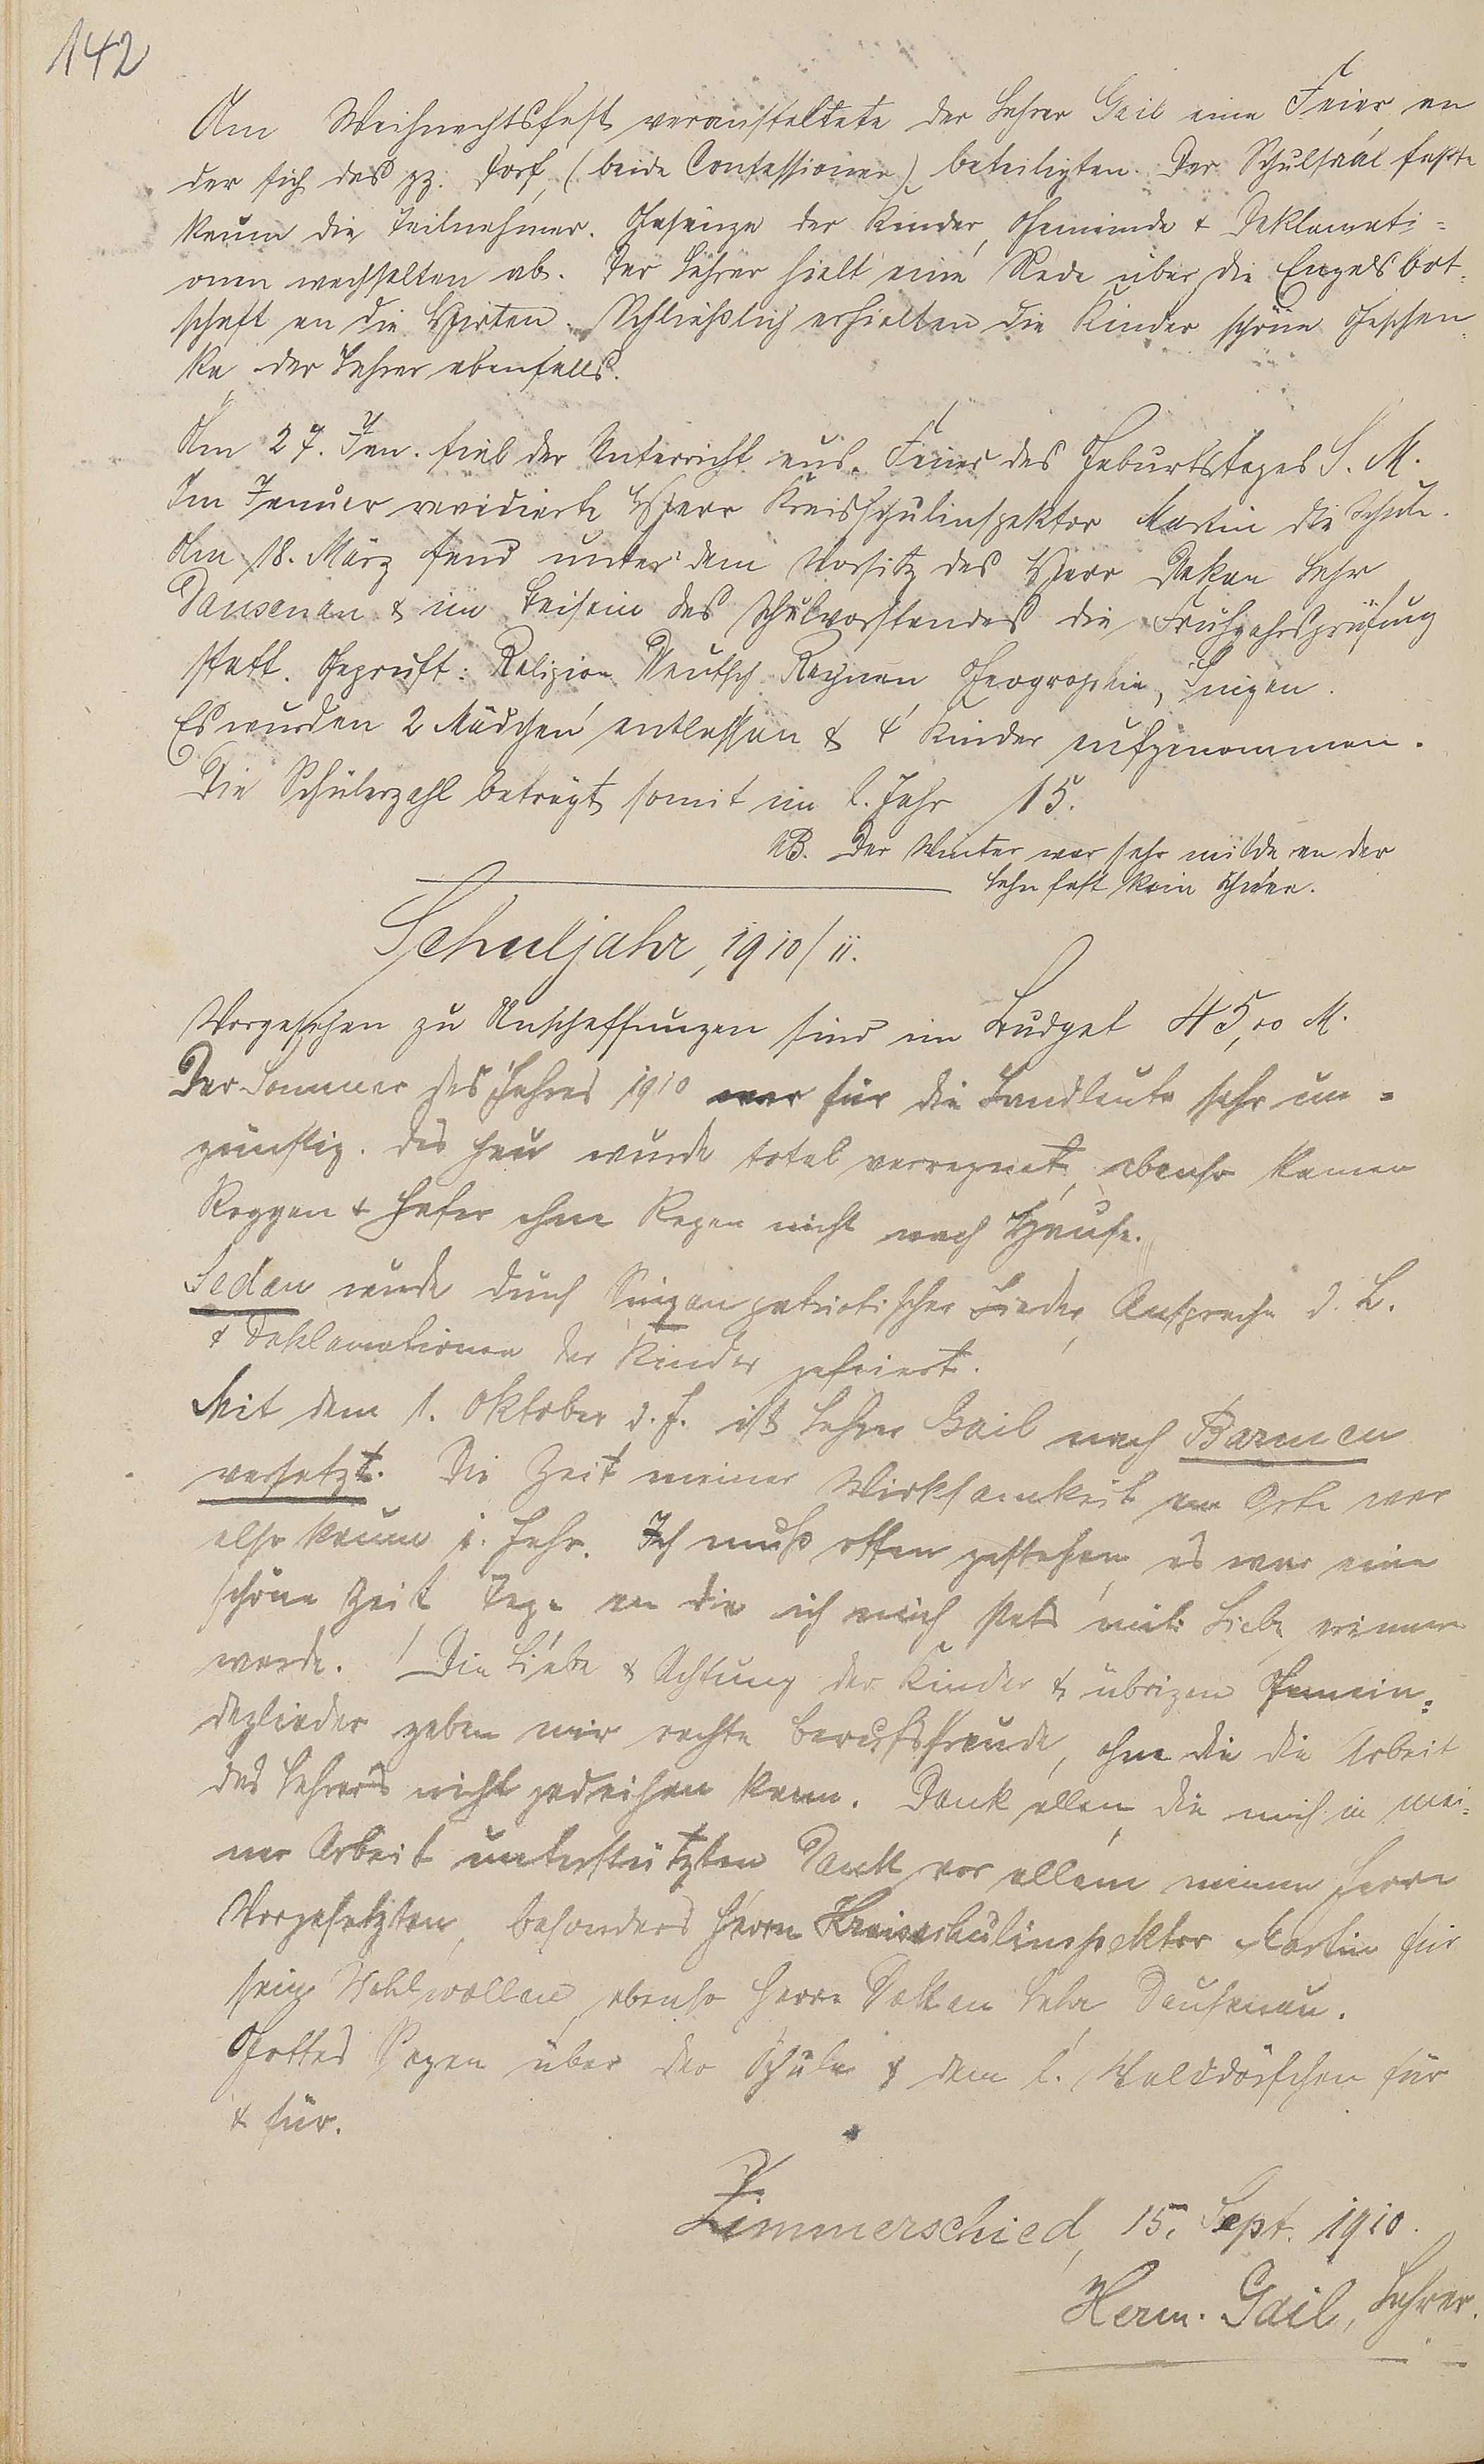 142
Am Weihnachtsfest veranstaltete der Lehrer Gail eine Feier, an
der sich das gz. Dorf, (beide Confessionen) beteiligten. Der Schulsaal faßte
kaum die Teilnehmer. Gesänge der Kinder, Gemeinde & Deklamati=
onen wechselten ab. Der Lehrer hielt eine Rede über die Engelsbot-
schaft an die Hirten. Schließlich erhielten die Kinder schöne Geschen-
ke, der Lehrer ebenfalls.
Am 27. Jan. fiel der Unterricht aus. Feier des Geburtstages S. M.
Im Januar revidierte Herr Kreisschulinspektor Martin die Schule.
Am 18. März fand unter dem Vorsitz des Herr Dekan Lehr
Dausenau & im Beisein des Schulvorstandes die Frühjahrsprüfung
statt. Geprüft: Religion Deutsch Rechnen, Geographie, Singen.
Es wurden 2 Mädchen entlassen & 4 Kinder aufgenommen.
Die Schülerzahl beträgt somit im l. Jahr 15.
NB. Der Winter war sehr milde, an der
Lahn fast kein Schnee.
Schuljahr, 1910/11.
Vorgesehen zu Anschaffungen sind im Budget 45,00 M.
Der Sommer des Jahres 1910 war für die Landleute sehr un=
günstig. Das Heu wurde total verregnet, ebenso kamen
Roggen & Hafer ohne Regen nicht nach Hause.
Sedan wurde durch Singen patriotischer Lieder, Ansprache d. L.
& Deklamationen der Kinder gefeiert.
Mit dem 1. Oktober d. J. ist Lehrer Gail nach Barmen
versetzt. Die Zeit meiner Wirksamkeit am Orte war
also kaum 1. Jahr. Ich muß offen gestehen, es war eine
schöne Zeit, Tage an die ich mich stets mit Liebe erinnern
werde. Die Liebe & Achtung der Kinder & übrigen Gemein=
deglieder gaben mir rechte Berufsfreude, ohne die die Arbeit
des Lehrers nicht gedeihen kann. Dank allen, die mich in mei=
ner Arbeit unterstützten, Dank vor allem meinen Herrn
Vorgesetzten, besonders Herrn Kreisschulinspektor Martin für
sein Wohlwollen, ebenso Herrn Dekan Lehr, Dausenau.
Gottes Segen über der Schule & dem l. Walddörfchen für
& für.
Zimmerschied, 15. Sept. 1910.
Herm. Gail, Lehrer.